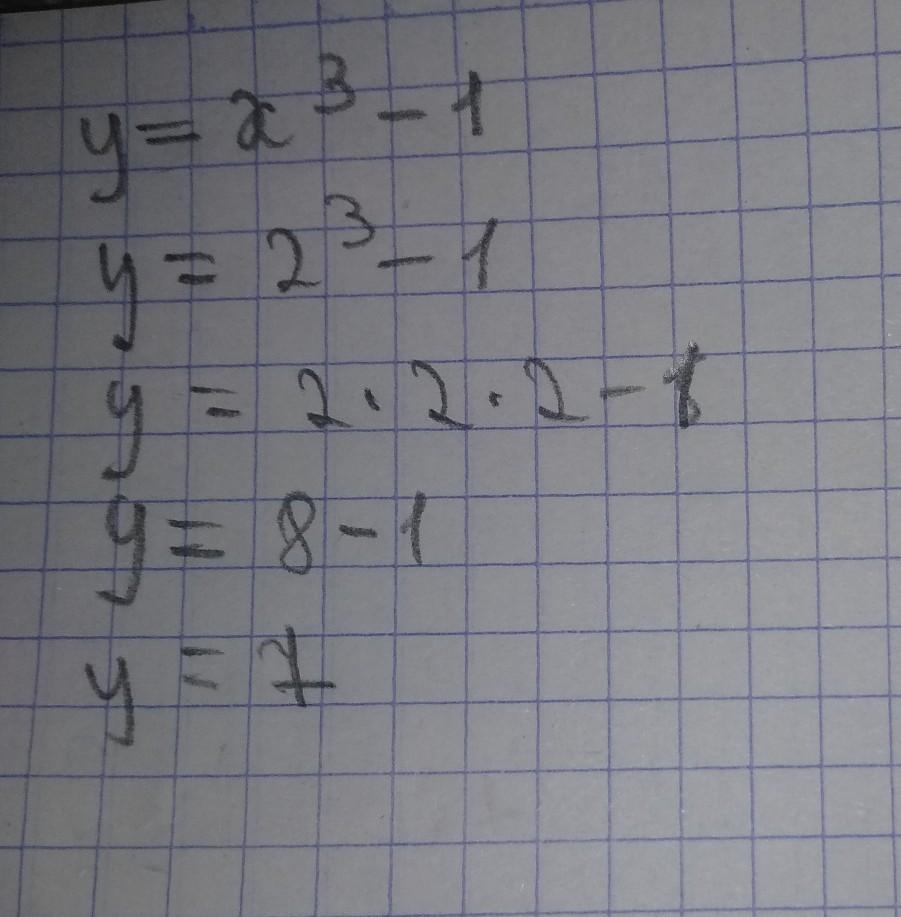 y = x³ - 1
y = 2³ - 1
y = 2 · 2 · 2 - 1
y = 8 - 1
y = 7